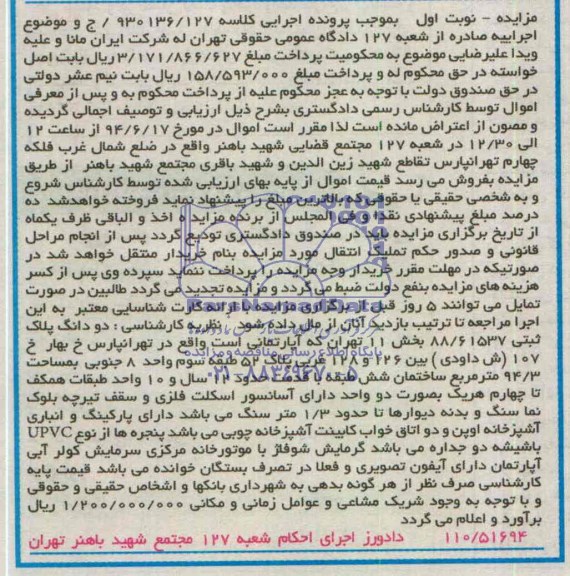 مزایده - نوبت اول   بموجب پرونده اجرایی کلاسه ۹۳۰۱۳۶/۱۲۷ / ج و موضوع
اجراییه صادره از شعبه ۱۲۷ دادگاه عمومی حقوقی تهران له شرکت ایران مانا و علیه
ویدا علیرضایی موضوع به محکومیت پرداخت مبلغ ۳/۱۷۱/۸۶۶/۶۲۷ ریال بابت اصل
خواسته در حق محکوم له و پرداخت مبلغ ۱۵۸/۵۹۳/۰۰۰ ریال بابت نیم عشر دولتی
در حق صندوق دولت با توجه به عجز محکوم علیه از پرداخت محکوم به و پس از معرفی
اموال توسط کارشناس رسمی دادگستری بشرح ذیل ارزیابی و توصیف اجمالی گردیده
و مصون از اعتراض مانده است لذا مقرر است اموال در مورخ ۹۴/۶/۱۷ از ساعت ۱۲
الی ۱۲/۳۰ در شعبه ۱۲۷ مجتمع قضایی شهید باهنر واقع در ضلع شمال غرب فلکه
چهارم تهرانپارس تقاطع شهید زین الدین و شهید باقری مجتمع شهید باهنر  از طریق
مزایده بفروش می رسد قیمت اموال از پایه بهای ارزیابی شده توسط کارشناس شروع
و به شخصی حقیقی یا حقوقی که بالاترین مبلغ را پیشنهاد نماید فروخته خواهدشد  ده
درصد مبلغ پیشنهادی نقدا و فی المجلس از برنده مزایده اخذ و الباقی ظرف یکماه
از تاریخ برگزاری مزایده باید در صندوق دادگستری تودیع گردد پس از انجام مراحل
قانونی و صدور حکم تملیک انتقال مورد مزایده بنام خریدار منتقل خواهد شد در
صورتیکه در مهلت مقرر خریدار وجه مزایده را پرداخت ننماید سپرده وی پس از کسر
هزینه های مزایده بنفع دولت ضبط می گردد و مزایده تجدید می گردد طالبین در صورت
تمایل می توانند ۵ روز قبل از برگزاری مزایده با ارائه کارت شناسایی معتبر  به این
اجرا مراجعه تا ترتیب بازدید آنان از مال داده شود    نظریه کارشناسی : دو دانگ پلاک
ثبتی ۸۸/۶۱۵۳۷ بخش ۱۱ تهران که آپارتمانی است واقع در تهرانپارس خ بهار  خ
۱۰۷ (ش داودی) بین ۱۲۶ و ۱۲۸ غربی پلاک ۵۲ طبقه سوم واحد ۸ جنوبی  بمساحت
۹۴/۳ مترمربع ساختمان شش طبقه با قدمت حدود سال و ۱۰ واحد طبقات همکف
تا چهارم هریک بصورت دو واحد دارای آسانسور اسکلت فلزی و سقف تیرچه بلوک
نما سنگ و بدنه دیوارها تا حدود ۱/۳ متر سنگ می باشد دارای پارکینگ و انباری
آشپزخانه اوپن و دو اتاق خواب کابینت آشپزخانه چوبی می باشد پنجره ها از نوع UPVC
باشیشه دو جداره می باشد گرمایش شوفاژ با موتورخانه مرکزی سرمایش کولر آبی
آپارتمان دارای آیفون تصویری و فعلا در تصرف بستگان خوانده می باشد قیمت پایه
کارشناسی صرف نظر از هر گونه بدهی به شهرداری بانکها و اشخاص حقیقی و حقوقی
و با توجه به وجود شریک مشاعی و عوامل زمانی و مکانی ۱/۲۰۰/۰۰۰/۰۰۰ ریال
برآورد و اعلام می گردد
۱۱۰/۵۱۶۹۴    دادورز اجرای احکام شعبه ۱۲۷ مجتمع شهید باهنر تهران